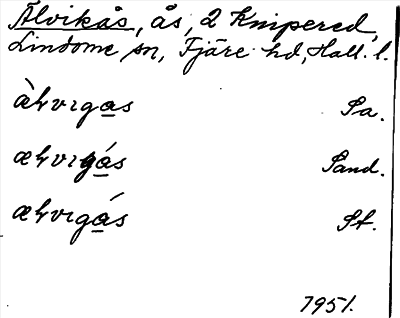 Älvikås, ås, 2 Knipered,
Lindome sn, Fjäre hd, Hall. l.
àƚvıgas Sa.
æƚvıgás Sand.
æƚvıgás St.
1951.